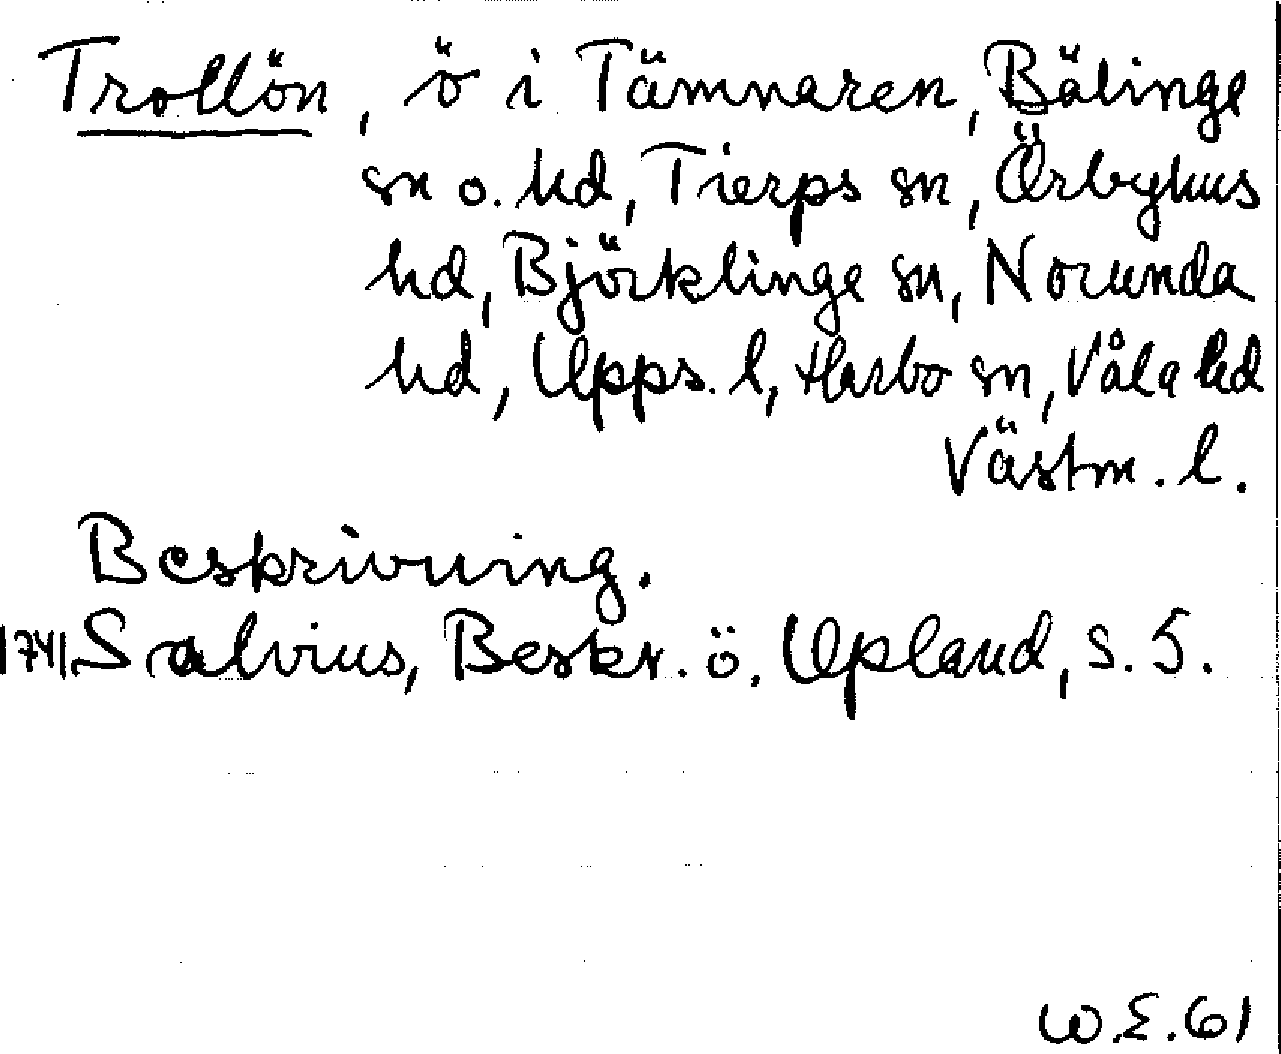 Trollön, ö i Tämnaren, Bälinge
sn o. hd, Tierps sn, Örbyhus
hd, Björklinge sn, Norunda
hd, Upps. l, Harbo sn, Våla hd
Västm. l.
Beskrivning.
1741 Salvius, Beskr. ö. Upland, s. 5.
W.E.61